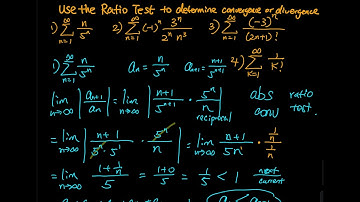 Use the Ratio Test to determine convergence or divergence
1) ∞∑n=1 n/5^n 2) ∞∑n=1 (-1)^n 3^n/(2^n n^3) 3) ∞∑n=1 (-3)^n/(2n+1)!
1) ∞∑n=1 n/5^n a_n = n/5^n a_{n+1} = (n+1)/5^{n+1} 4) ∞∑K=1 1/K!
lim n→∞ |a_{n+1}/a_n| = lim n→∞ |(n+1)/5^{n+1} · 5^n/n| abs ratio
reciprical conv test.
= lim n→∞ |(n+1)/(5^n · 5^1) · 5^n/n| = lim n→∞ (n+1)/(5n) · (1/n)/(1/n)
= lim n→∞ (1+1/n)/5 = (1+0)/5 = 1/5 < 1 next
current